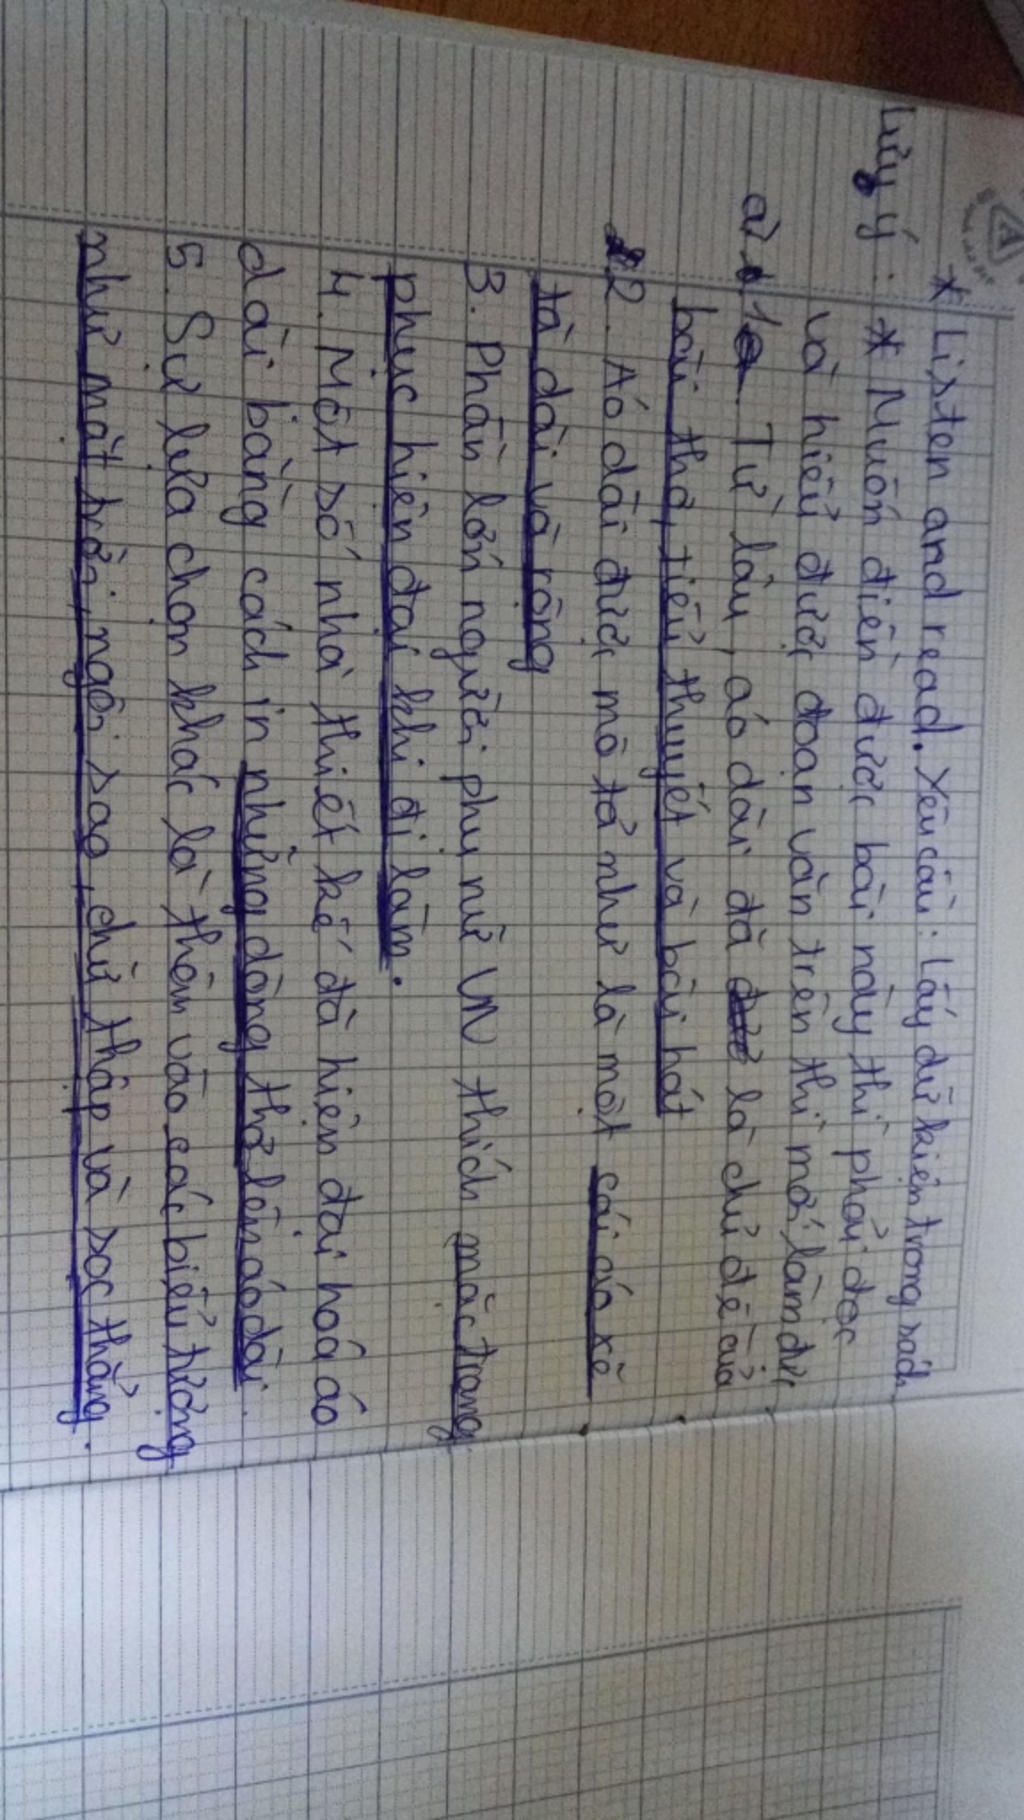 * Listen and read. Yêu cầu: Lấy dữ kiện trong sách
Lưu ý: * Muốn điền được bài này thì phải đọc
và hiểu được đoạn văn trên thì mới làm được
a) 1. Từ lâu, áo dài đã là chủ đề của
bài thơ, tiểu thuyết và bài hát
2. Áo dài được mô tả như là một cái áo xẻ
tà dài và rộng
3. Phần lớn người phụ nữ VN thích mặc trang
phục hiện đại khi đi làm.
4. Một số nhà thiết kế đã hiện đại hoá áo
dài bằng cách in những dòng thơ lên áo dài.
5. Sự lựa chọn khác là thêm vào các biểu tượng
như mặt trời, ngôi sao, chữ thập và sọc thẳng.